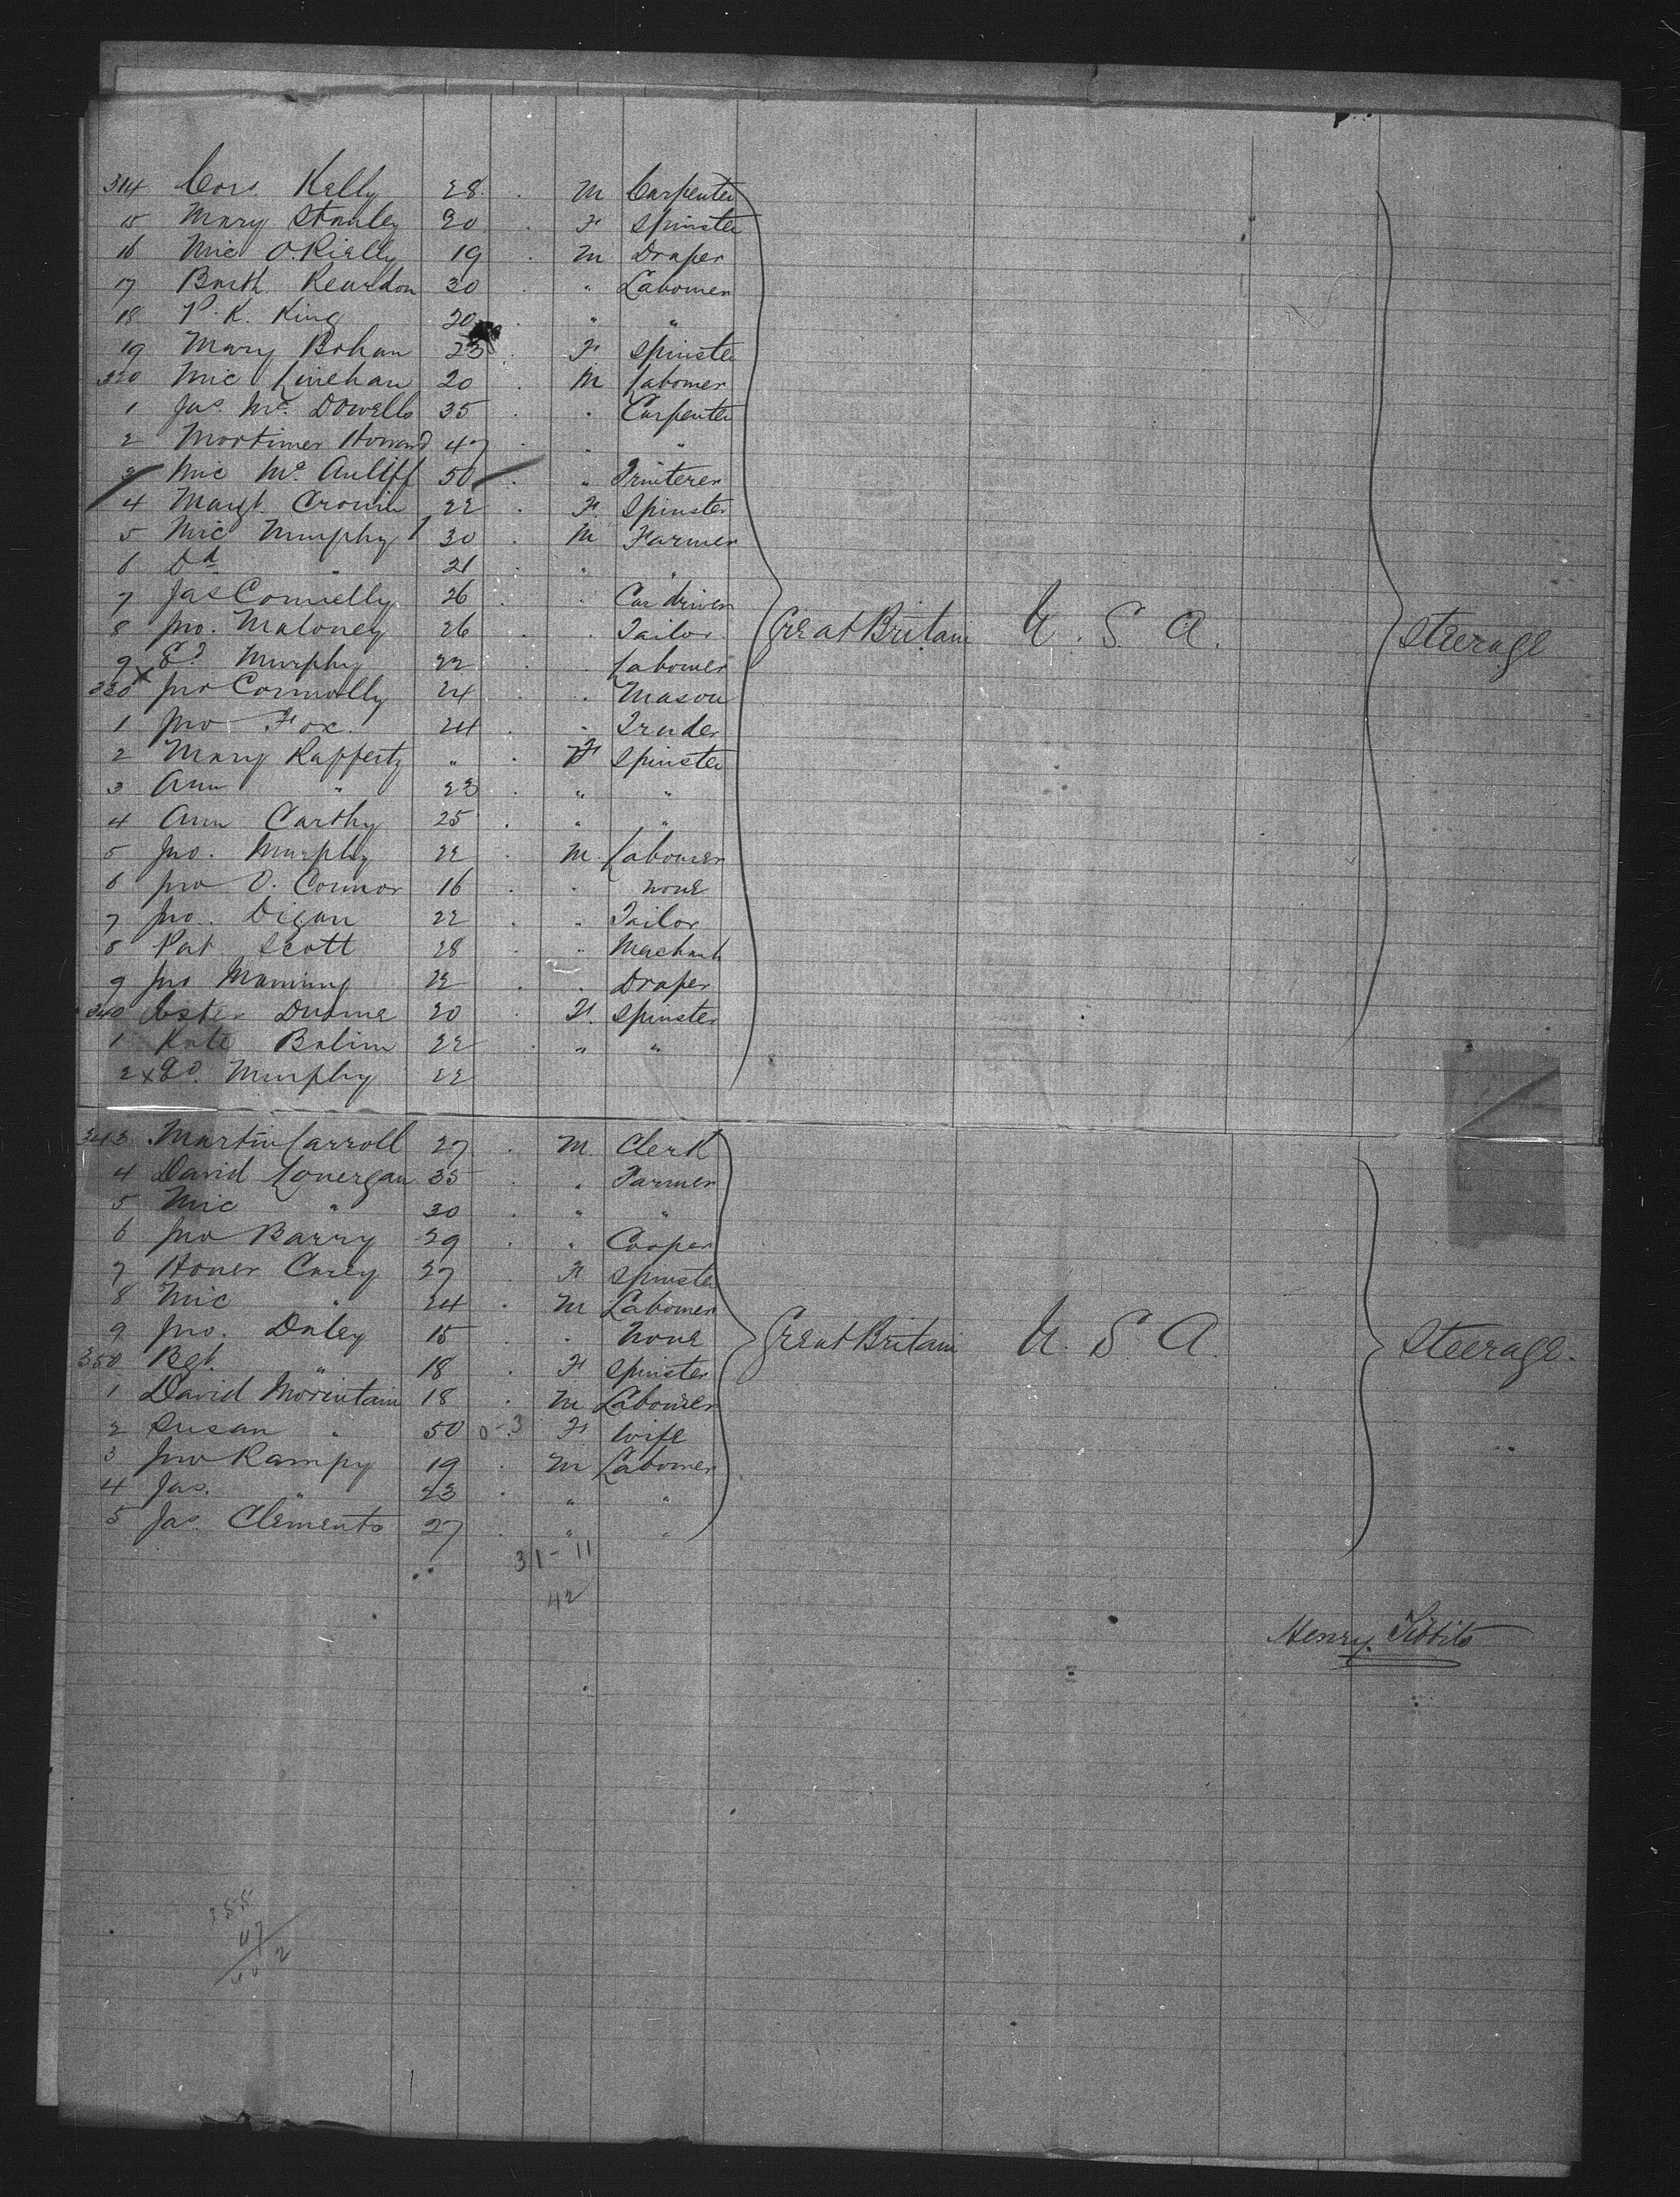 314 Cors. Kelly 28 M Carpenter
15 Mary Stanley 20 F Spinster
16 Mic O. Rielly 19 M Draper
17 Barth Reardon 30 " Labourer
18 P. K. King 20 " "
19 Mary Bohan 23 F Spinster
320 Mic Linehan 20 M Labourer
1 Jas. Mc. Dowells 35 " Carpenter
2 Mortimer Howard 47 " "
3 Mic Mc. Auliff 50 "
4 Margt. Cronin 22 F. Spinster
5 Mic Murphy 30 M Farmer
6 Dd " 21 " "
7 Jas Connelly 26 " Car driver
8 Jno. Maloney 26 " Tailor Great Britain U. S. A. Steerage
9 x Ed. Murphy 22 " Labourer
330 Jno Connolly 24 " Mason
1 Jno Fox 24 " Trader
2 Mary Rafferty " F Spinster
3 Ann " 23 " "
4 Ann Carthy 25 " "
5 Jno. Murphy 22 M. Labourer
6 Jno O. Connor 16 " none
7 Jno. Digan 22 " Tailor
8 Pat Scott 28 " Merchant
9 Jno Manning 22 " Draper
340 20 F. Spinster
1 Kate 22 " "
2 x Ed. Murphy 22
343 Martin Carroll 27 M. Clerk
4 David Lonergan 35 " Farmer
5 Mic " 30 " "
6 Jno Barry 29 " Cooper
7 Honer Carey 27 F Spinster
8 Mic " 24 M Labourer
9 Jno. Daley 15 " None Great Britain U. S. A. Steerage.
350 Bgt. " 18 F Spinster
1 David 18 M Labourer
2 Susan " 50 0-3 F Wife
3 Jno Rampy 19 M Labourer
4 Jas. " 23 " "
5 Jas Clements 27 " "
31-11
42
Henry Tibbits
355
47
402